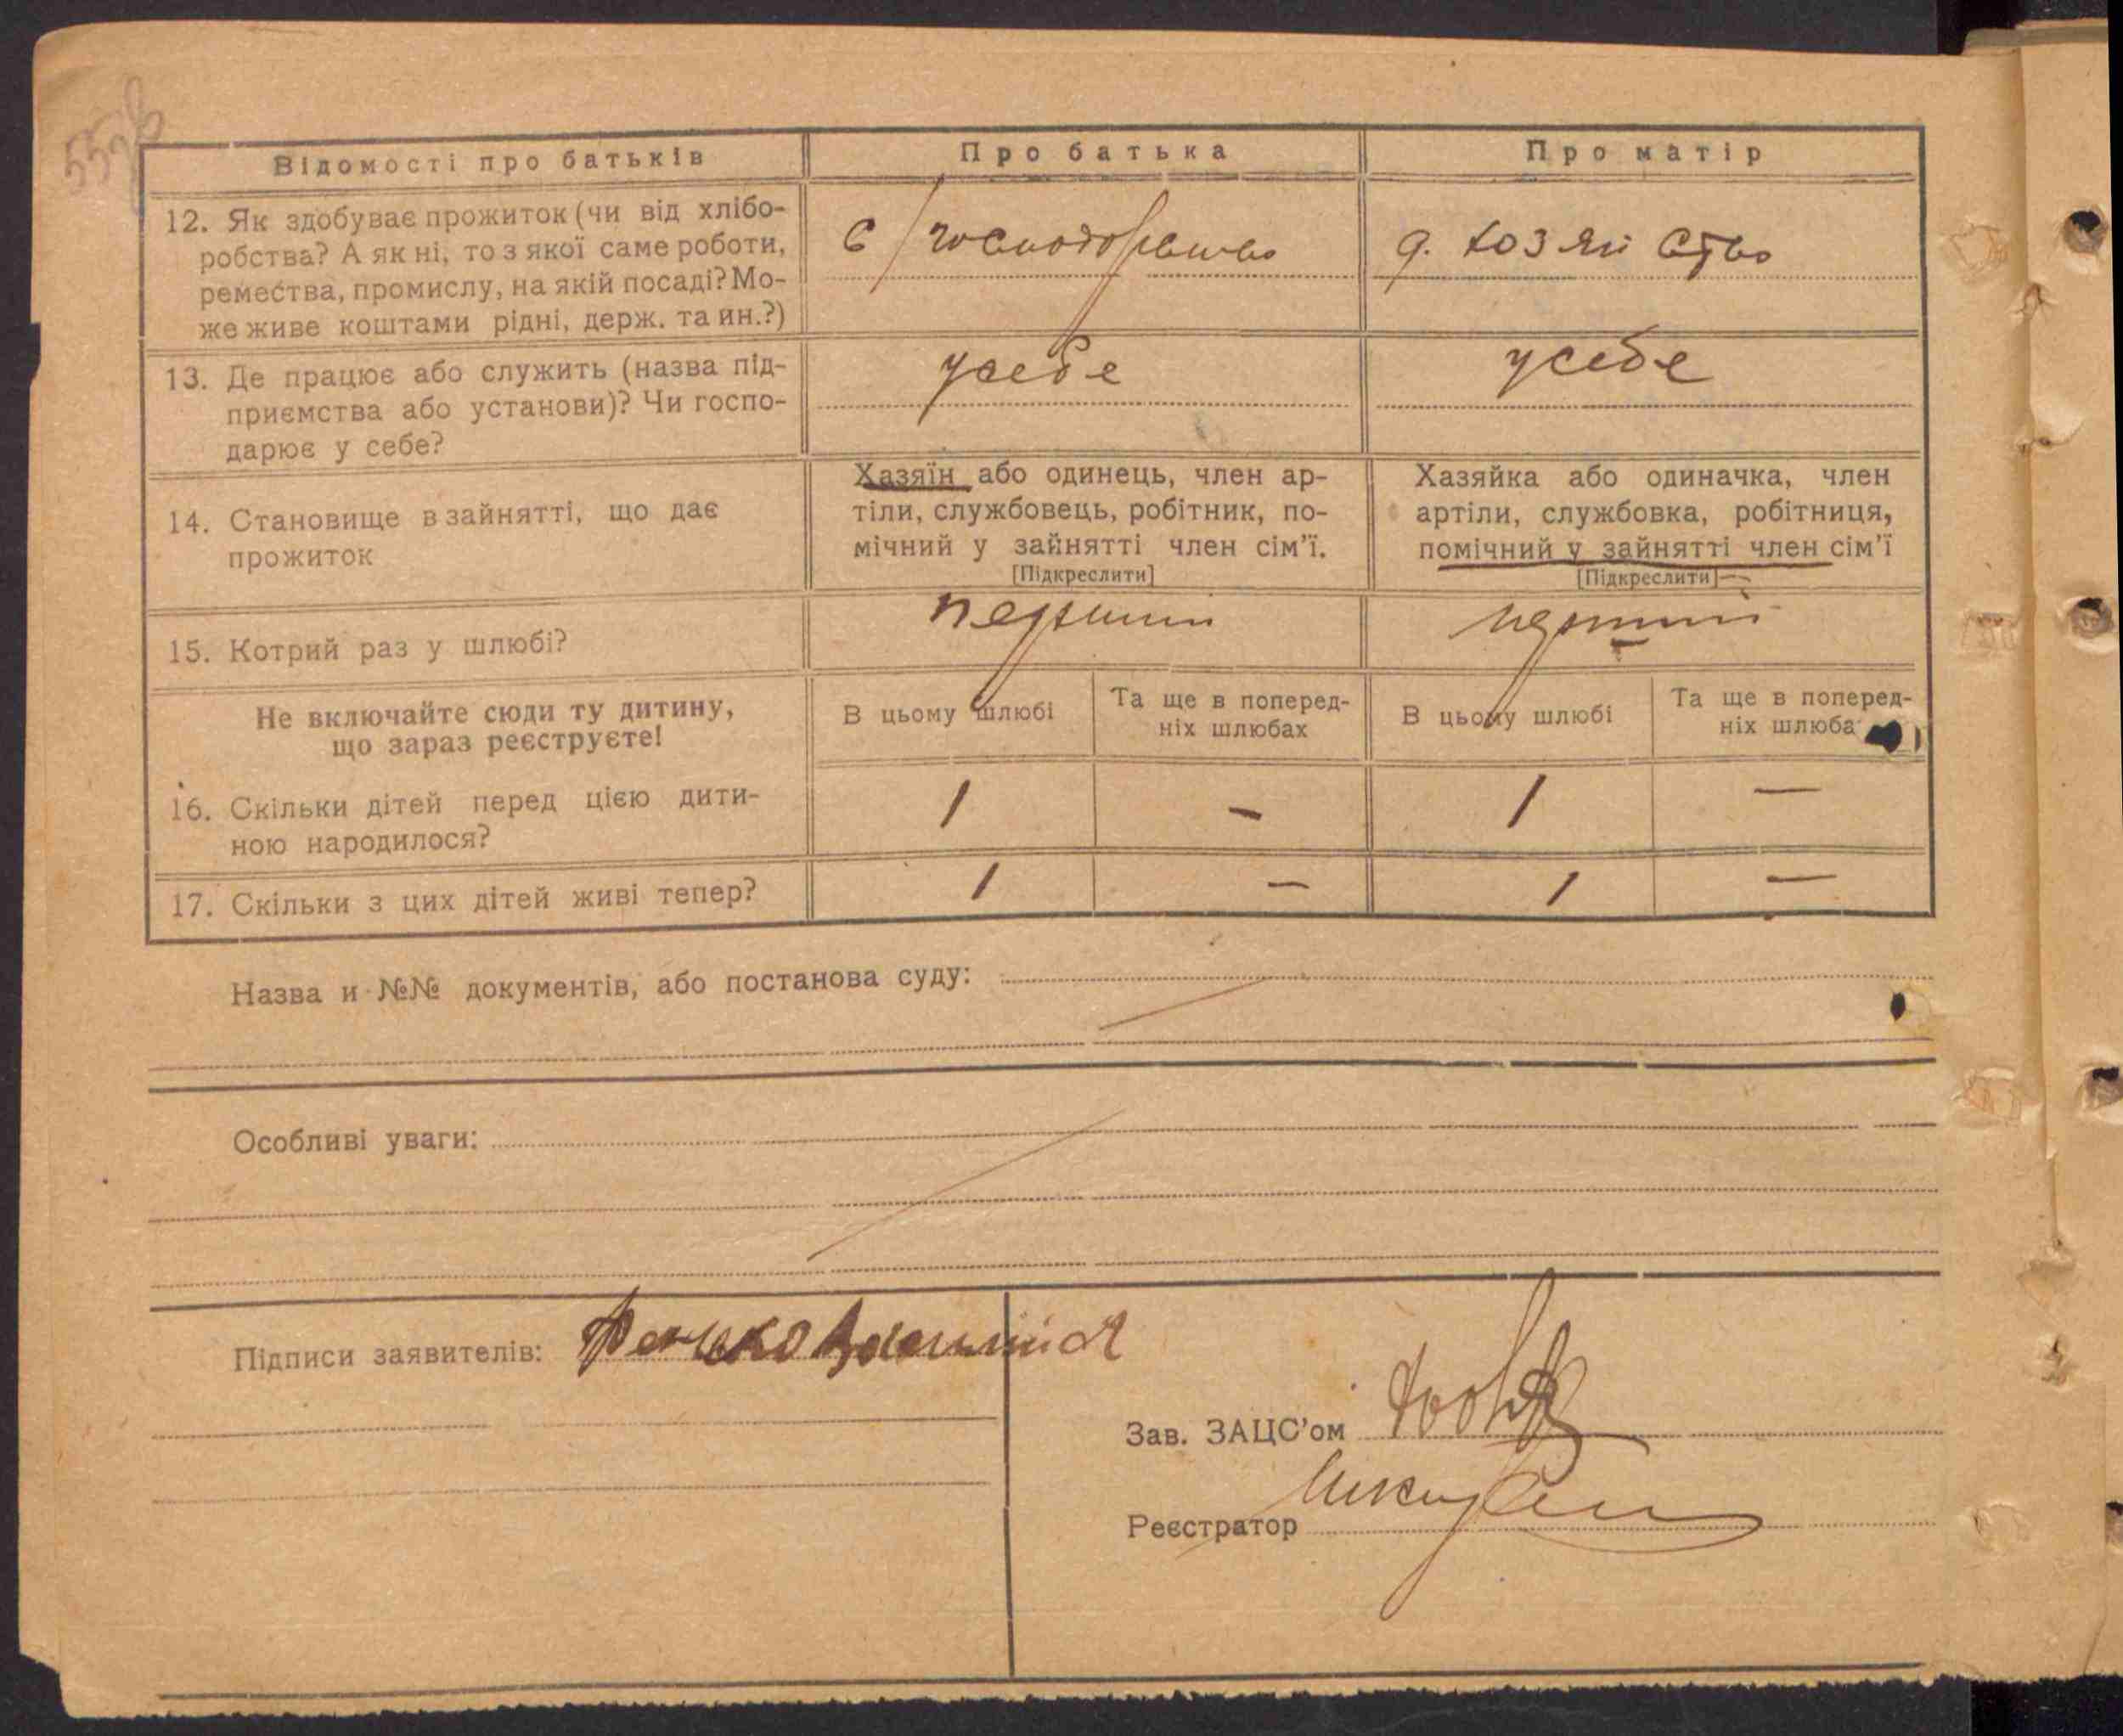 Відомості про батьків
Про батька
Про матір
12. Як здобуває прожиток (чи від хлібо-
робства? А як ні, то з якої саме роботи,
ремества, промислу, на якій посаді? Мо-
же живе коштами рідні, держ. та ин.?)
с/господарство
д. хозяйство
13. Де працює або служить (назва під-
приємства або установи)? Чи госпо-
дарює у себе?
усебе
усебе
14. Становище в зайнятті, що дає
прожиток
Хазяїн або одинець, член ар-
тіли, службовець, робітник, по-
мічний у зайнятті член сім'ї.
[Підкреслити]
Хазяйка або одиначка, член
артіли, службовка, робітниця,
помічний у зайнятті член сім'ї
[Підкреслити]
15. Котрий раз у шлюбі?
перший
перший
Не включайте сюди ту дитину,
що зараз реєструєте!
В цьому шлюбі
Та ще в поперед-
ніх шлюбах
В цьому шлюбі
Та ще в поперед-
ніх шлюба
16. Скільки дітей перед цією дити-
ною народилося?
1
-
1
—
17. Скільки з цих дітей живі тепер?
1
—
1
—
Назва и №№ документів, або постанова суду:
Особливі уваги:
Підписи заявителів:
Зав. ЗАЦС'ом
Реєстратор